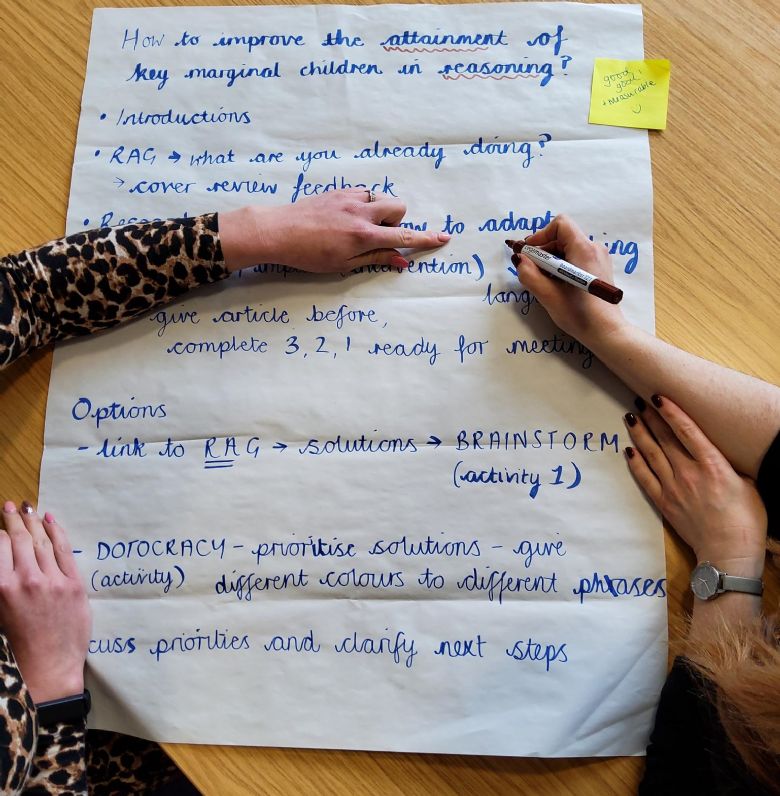 How to improve the attainment of
key marginal children in reasoning?
good
goal!
measurable
• Introductions
• RAG → what are you already doing?
→ cover review feedback
to adapt
ention)
give article before,
complete 3, 2, 1 ready for meeting
Options
- link to RAG → solutions → BRAINSTORM
(activity 1)
- DOTOCRACY - prioritise solutions - give
(activity) different colours to different phrases
cuss priorities and clarify next steps